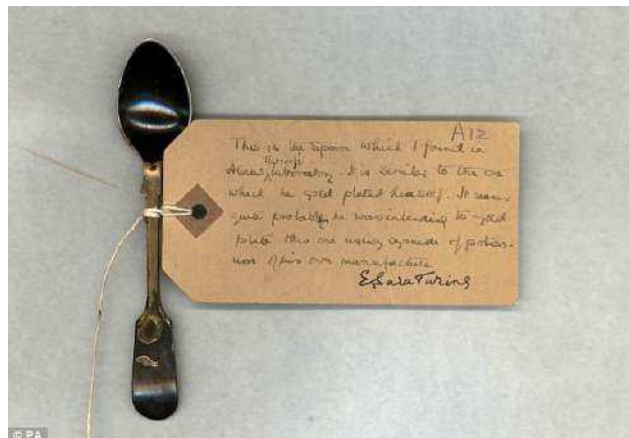 A12
This is the spoon which I found in
Turing's
Alan's laboratory. It is similar to the one
which he gold plated himself. It seems
quite probable he was intending to gold
plate this one using cyanide of potass-
ium of his own manufacture
E. Sara Turing
© PA